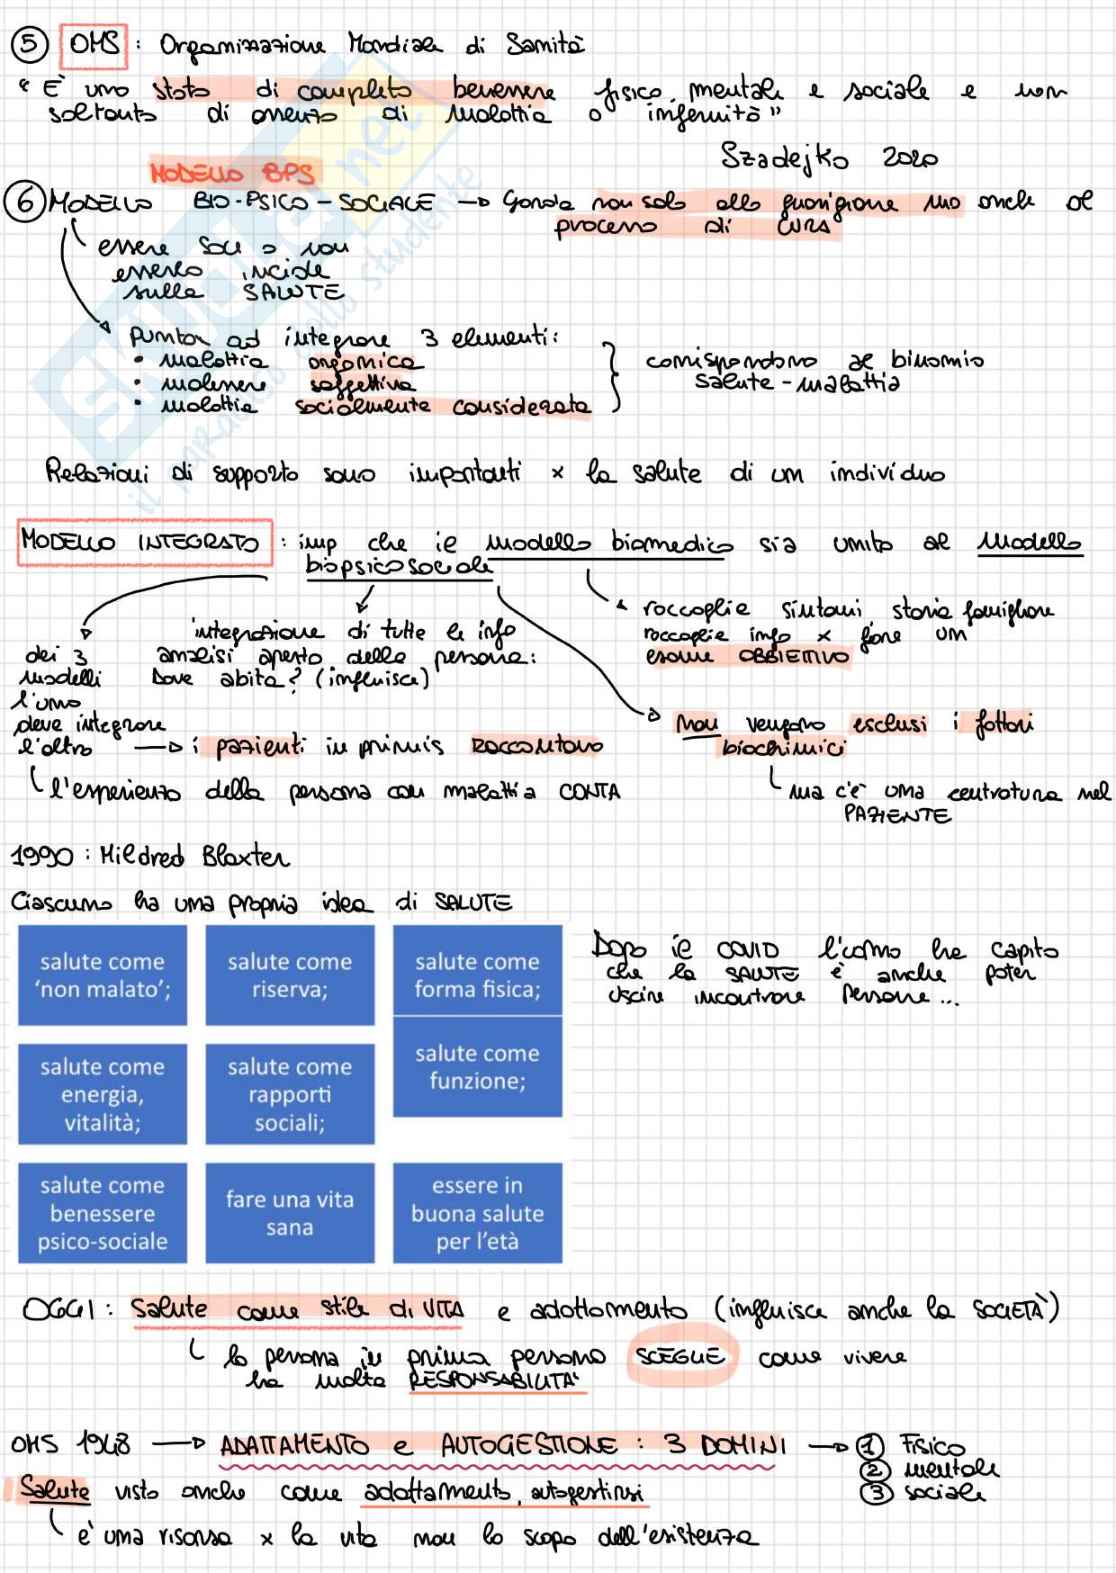 5 OMS : Organizzazione Mondiale di Sanità
“È uno stato di completo benessere fisico, mentale e sociale e non
soltanto di assenza di malattia o infermità”
Szadejko 2020
MODELLO BPS
6 MODELLO BIO-PSICO-SOCIALE → Guarda non solo alla guarigione ma anche al
processo di CURA
essere soli o non
esserlo incide
sulla SALUTE
Punta ad integrare 3 elementi:
• malattia organica
• malessere soggettiva
• malattia socialmente considerata
corrispondono al binomio
salute-malattia
Relazioni di supporto sono importanti x la salute di un individuo
MODELLO INTEGRATO : imp che il modello biomedico sia unito al modello
biopsicosociale
raccoglie sintomi, storia famigliare
raccoglie info x fare un
esame OBBIETTIVO
integrazione di tutte le info
analisi aperta della persona:
Dove abita? (influisce)
dei 3
modelli
l'uno
deve integrare
l'altro → i pazienti in primis RACCONTANO
l'esperienza della persona con malattia CONTA
Non vengono esclusi i fattori
biochimici
ma c'è una centratura nel
PAZIENTE
1990 : Mildred Blaxter
Ciascuno ha una propria idea di SALUTE
salute come
‘non malato’;
salute come
riserva;
salute come
forma fisica;
salute come
energia,
vitalità;
salute come
rapporti
sociali;
salute come
funzione;
salute come
benessere
psico-sociale
fare una vita
sana
essere in
buona salute
per l’età
Dopo il COVID l'uomo ha capito
che la SALUTE è anche poter
uscire incontrare Persone...
OGGI : Salute come stile di VITA e adattamento (influisce anche la SOCIETÀ)
la persona in prima persona SCEGLIE come vivere
ha molta RESPONSABILITA'
OMS 1948 → ADATTAMENTO e AUTOGESTIONE : 3 DOMINI → 1 Fisico
2 mentale
3 sociale
Salute vista anche come adattamento, autogestirsi
è una risorsa x la vita non lo scopo dell'esistenza
skuola.net
il paradiso dello studente